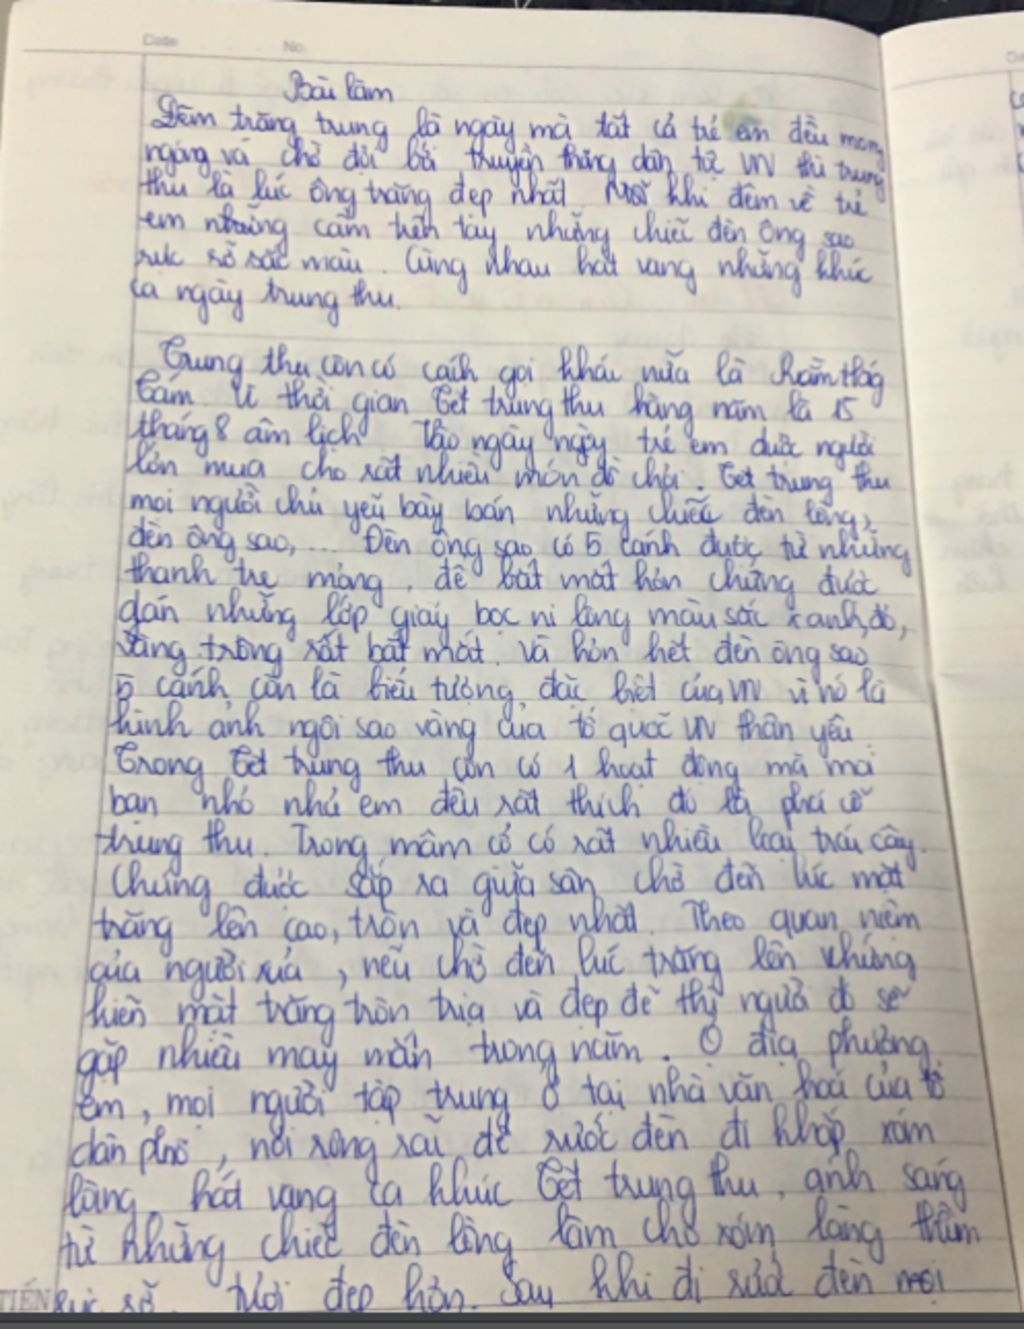 Date No.
Bài làm
Đêm trăng trung là ngày mà tất cả trẻ em đều mong
ngóng và chờ đợi bởi truyền thống dân tộc VN thì trung
thu là lúc ông trăng đẹp nhất. Mỗi khi đêm về trẻ
em những cầm trên tay những chiếc đèn ông sao
rực rỡ sắc màu. Cùng nhau hát vang những khúc
ca ngày trung thu.
Trung thu còn có cách gọi khác nữa là rằm tháng
Tám. Vì thời gian Tết trung thu hàng năm là 15
tháng 8 âm lịch. Vào ngày này trẻ em được người
lớn mua cho rất nhiều món đồ chơi. Tết trung thu
mọi người chủ yếu bày bán những chiếc đèn lồng,
đèn ông sao,... Đèn ông sao có 5 cánh được từ những
thanh tre mỏng, để bắt mắt hơn chúng được
dán những lớp giấy bọc ni lông màu sắc xanh, đỏ,
vàng trông rất bắt mắt. Và hơn hết đèn ông sao
5 cánh còn là biểu tượng đặc biệt của VN vì nó là
hình ảnh ngôi sao vàng của tổ quốc VN thân yêu.
Trong Tết trung thu còn có 1 hoạt động mà mọi
bạn nhỏ như em đều rất thích đó là phá cỗ
trung thu. Trong mâm cổ có rất nhiều loại trái cây.
Chúng được sắp ra giữa sân chờ đến lúc mặt
trăng lên cao, tròn và đẹp nhất. Theo quan niệm
của người xưa, nếu chờ đến lúc trăng lên chứng
kiến mặt trăng tròn trịa và đẹp đẽ thì người đó sẽ
gặp nhiều may mắn trong năm. Ở địa phương
em, mọi người tập trung ở tại nhà văn hoá của tổ
dân phố, nơi rộng rãi để rước đèn đi khắp xóm
làng, hát vang ca khúc Tết trung thu, ánh sáng
từ những chiếc đèn lồng làm cho xóm làng thêm
rực rỡ, tươi đẹp hơn. Sau khi đi rước đèn mọi
TIẾN